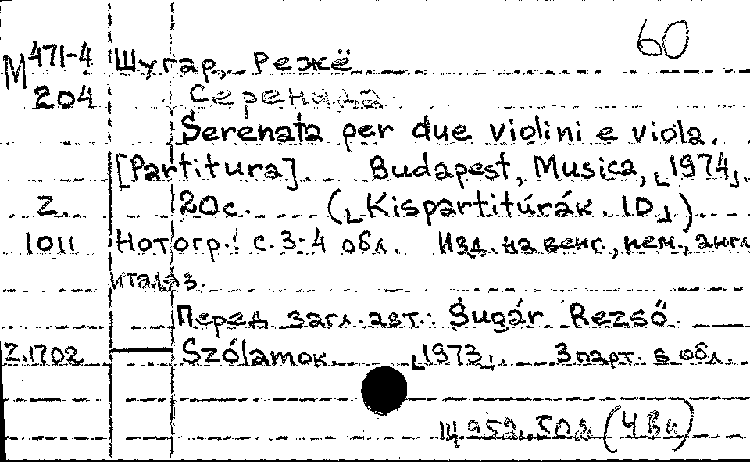 60
М 471-4 Шугар, Режё
204 Серенада
Serenata per due violini e viola.
[Partitura]. Budapest, Musica, ⌞1974⌟.
Z. 20с. (⌞Kispartitúrák. 10⌟).
1011 Нотогр.: с. 3-4 обл. Изд. на венг., нем., англ
итал яз.
Перед загл. авт.: Sugár Rezső.
Z.1702 —— Szólamok. ⌞1973⌟. 3 парт. в обл.